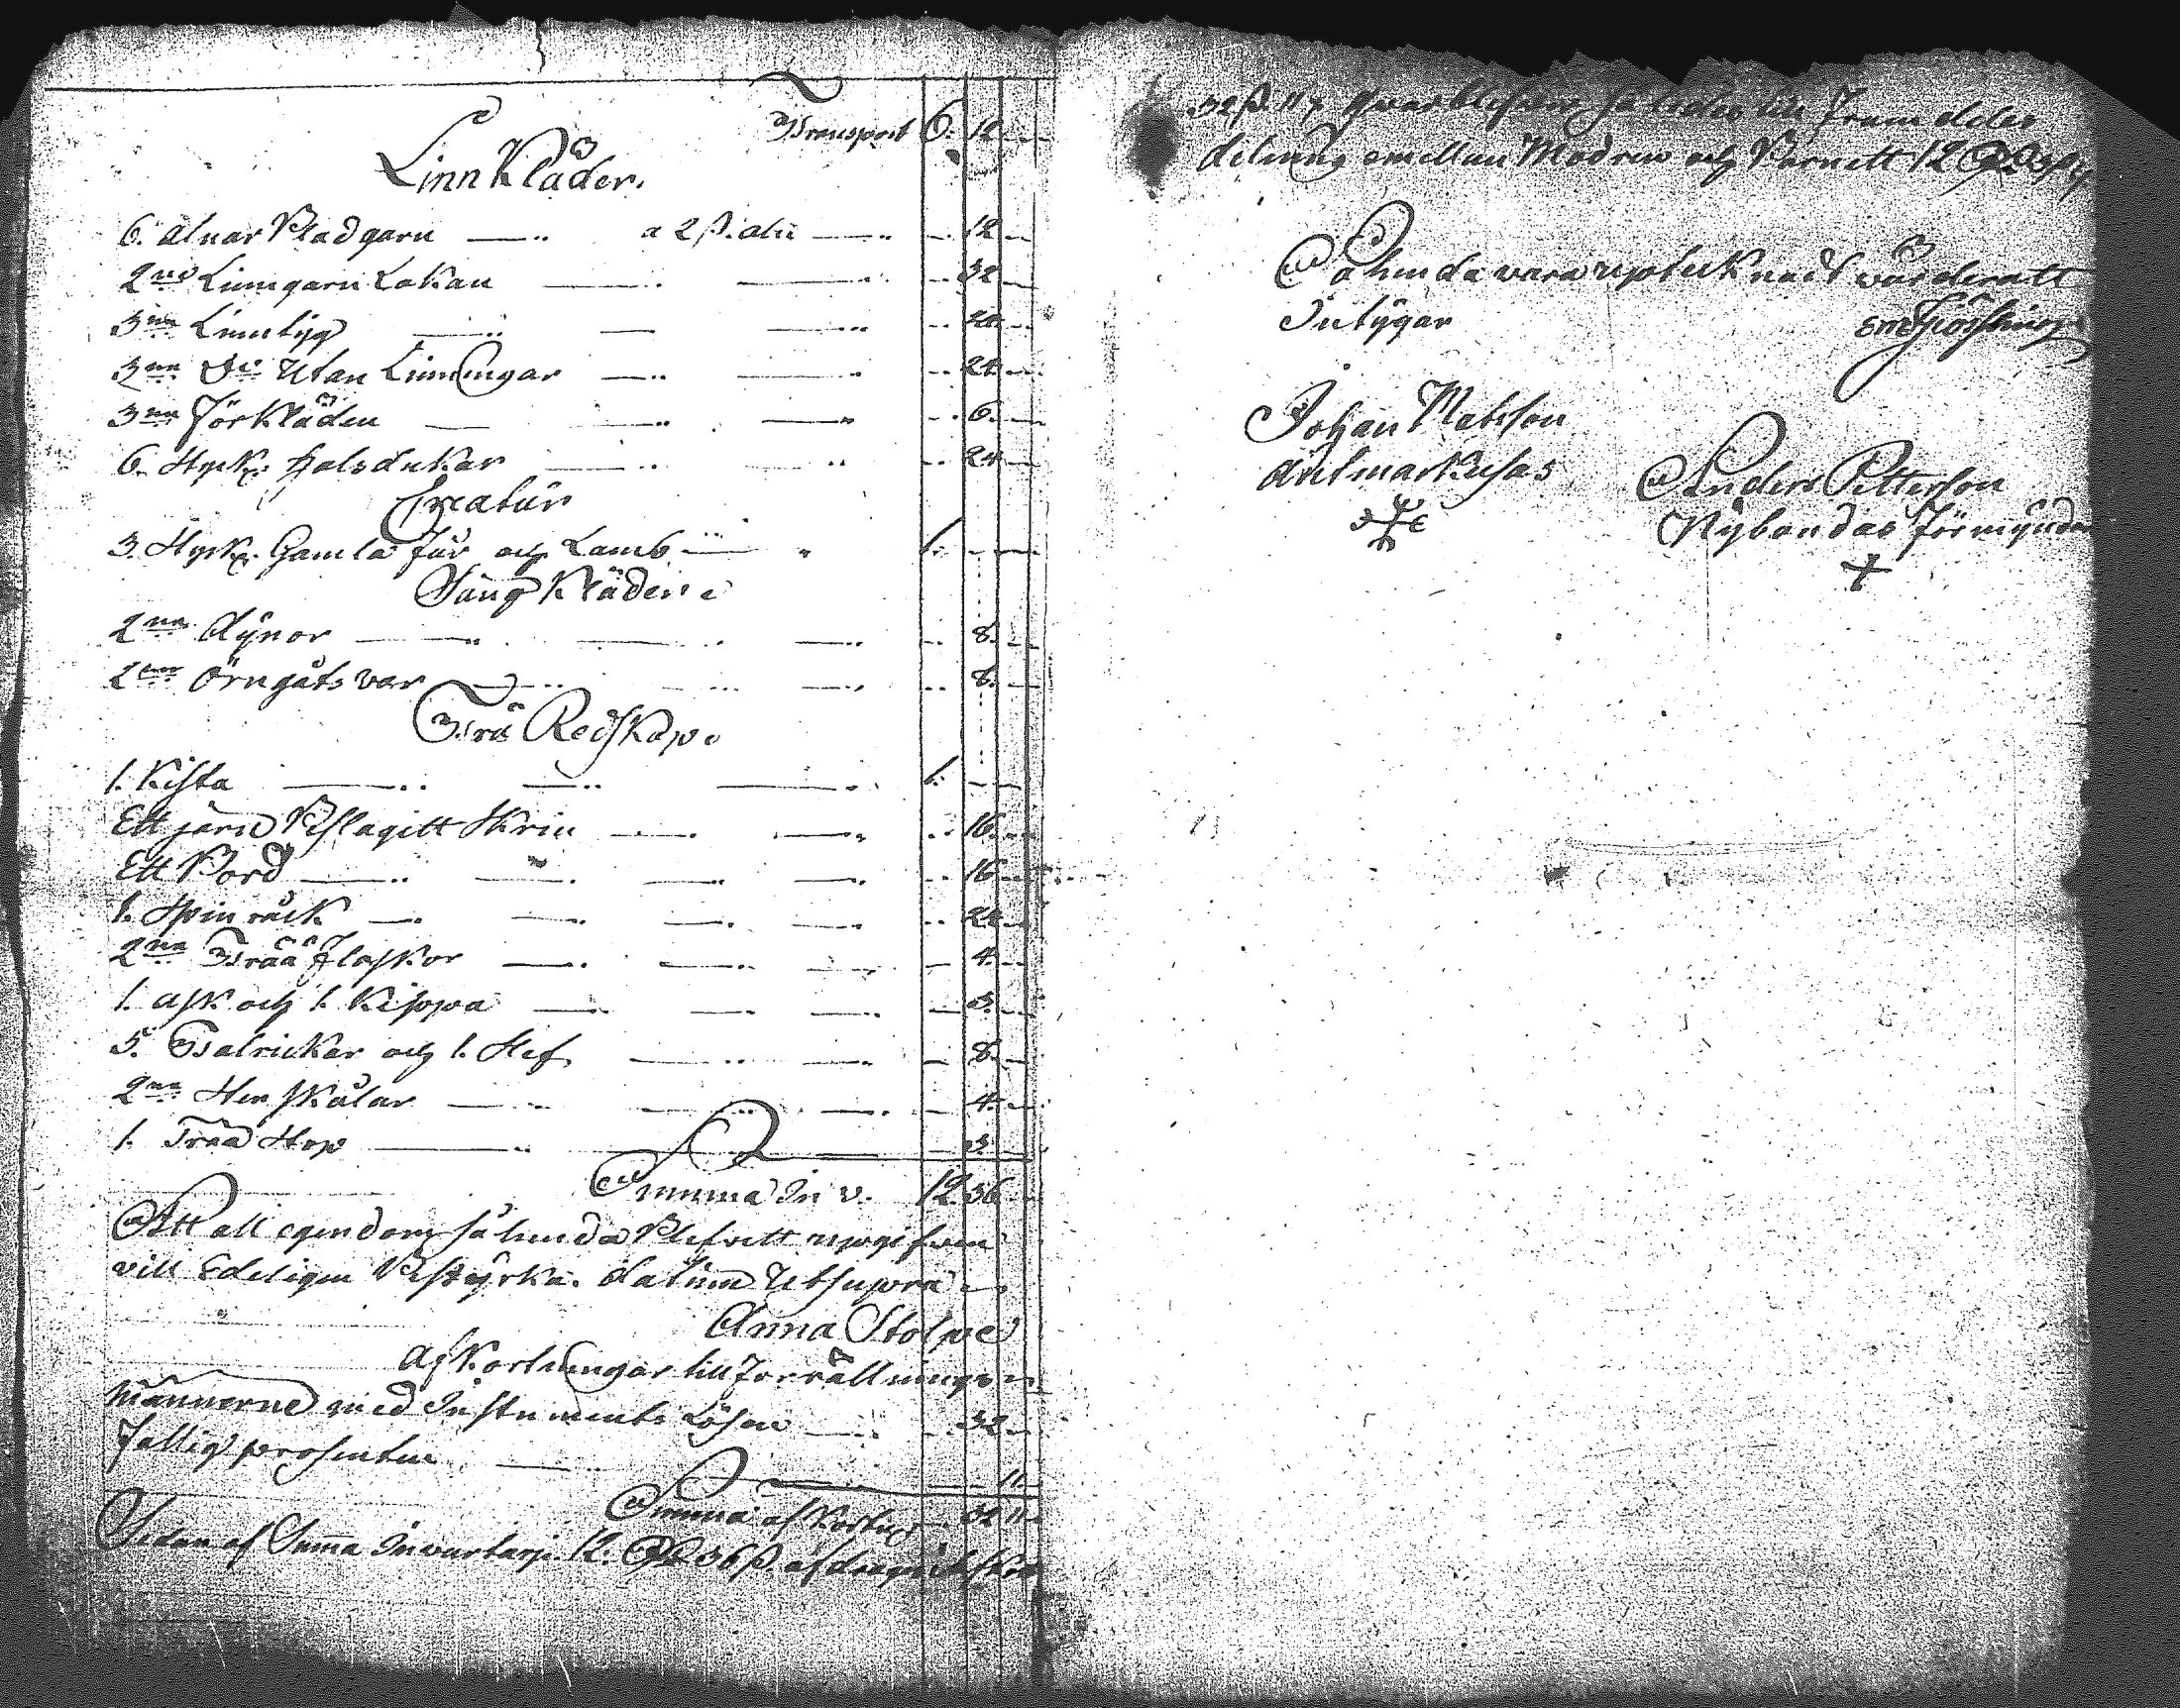 Transport 6. 12.
Linn Kläder.
6. alnar Bladgarn a 2 ß. aln 12
2ne Linngarn Lakan 32
3ne Linntyg 24
3ne Do Utan Linningar 24
3ne Förkläden 6.
6. Styck. Halsdukar 24
Creatur
3. Styck. Gamla får och Lamb 1.
Säng Kläder
2ne dynor 8.
2ne Örngåtsvar 8.
Trä Redskap
1. Kista 1.
Ett järn Beslagitt Skrin 16.
Ett Bord 16
1. Spinråck 24
2ne Trää flaskor 4.
1. ask och 1. Kippa 3.
5. Talrickar och 1. Stef 8.
2ne Sten skålar 4.
1. Trää Stop 3
Summa In v. 12 36
Att all egendom sålunda Blefvitt upgifven
vill Edeligen Bestyrka. datum Utsupra
Anna Stolpe
Afkortningar till Förrättnings
männerne med Instruments Lösen 32
fattig prosenten 11
Summa afkortn. 32 11.
Sedan af Summa Inventarii 12. 36 ß. afdragit
32 ß. 11 Qvarblifver således till Fram
delning emellan Modren och Barnett 12
Sålunda vara uptecknadt värderatt
Intÿgar
Johan Matsson
Anders Pettersson
förmÿndare